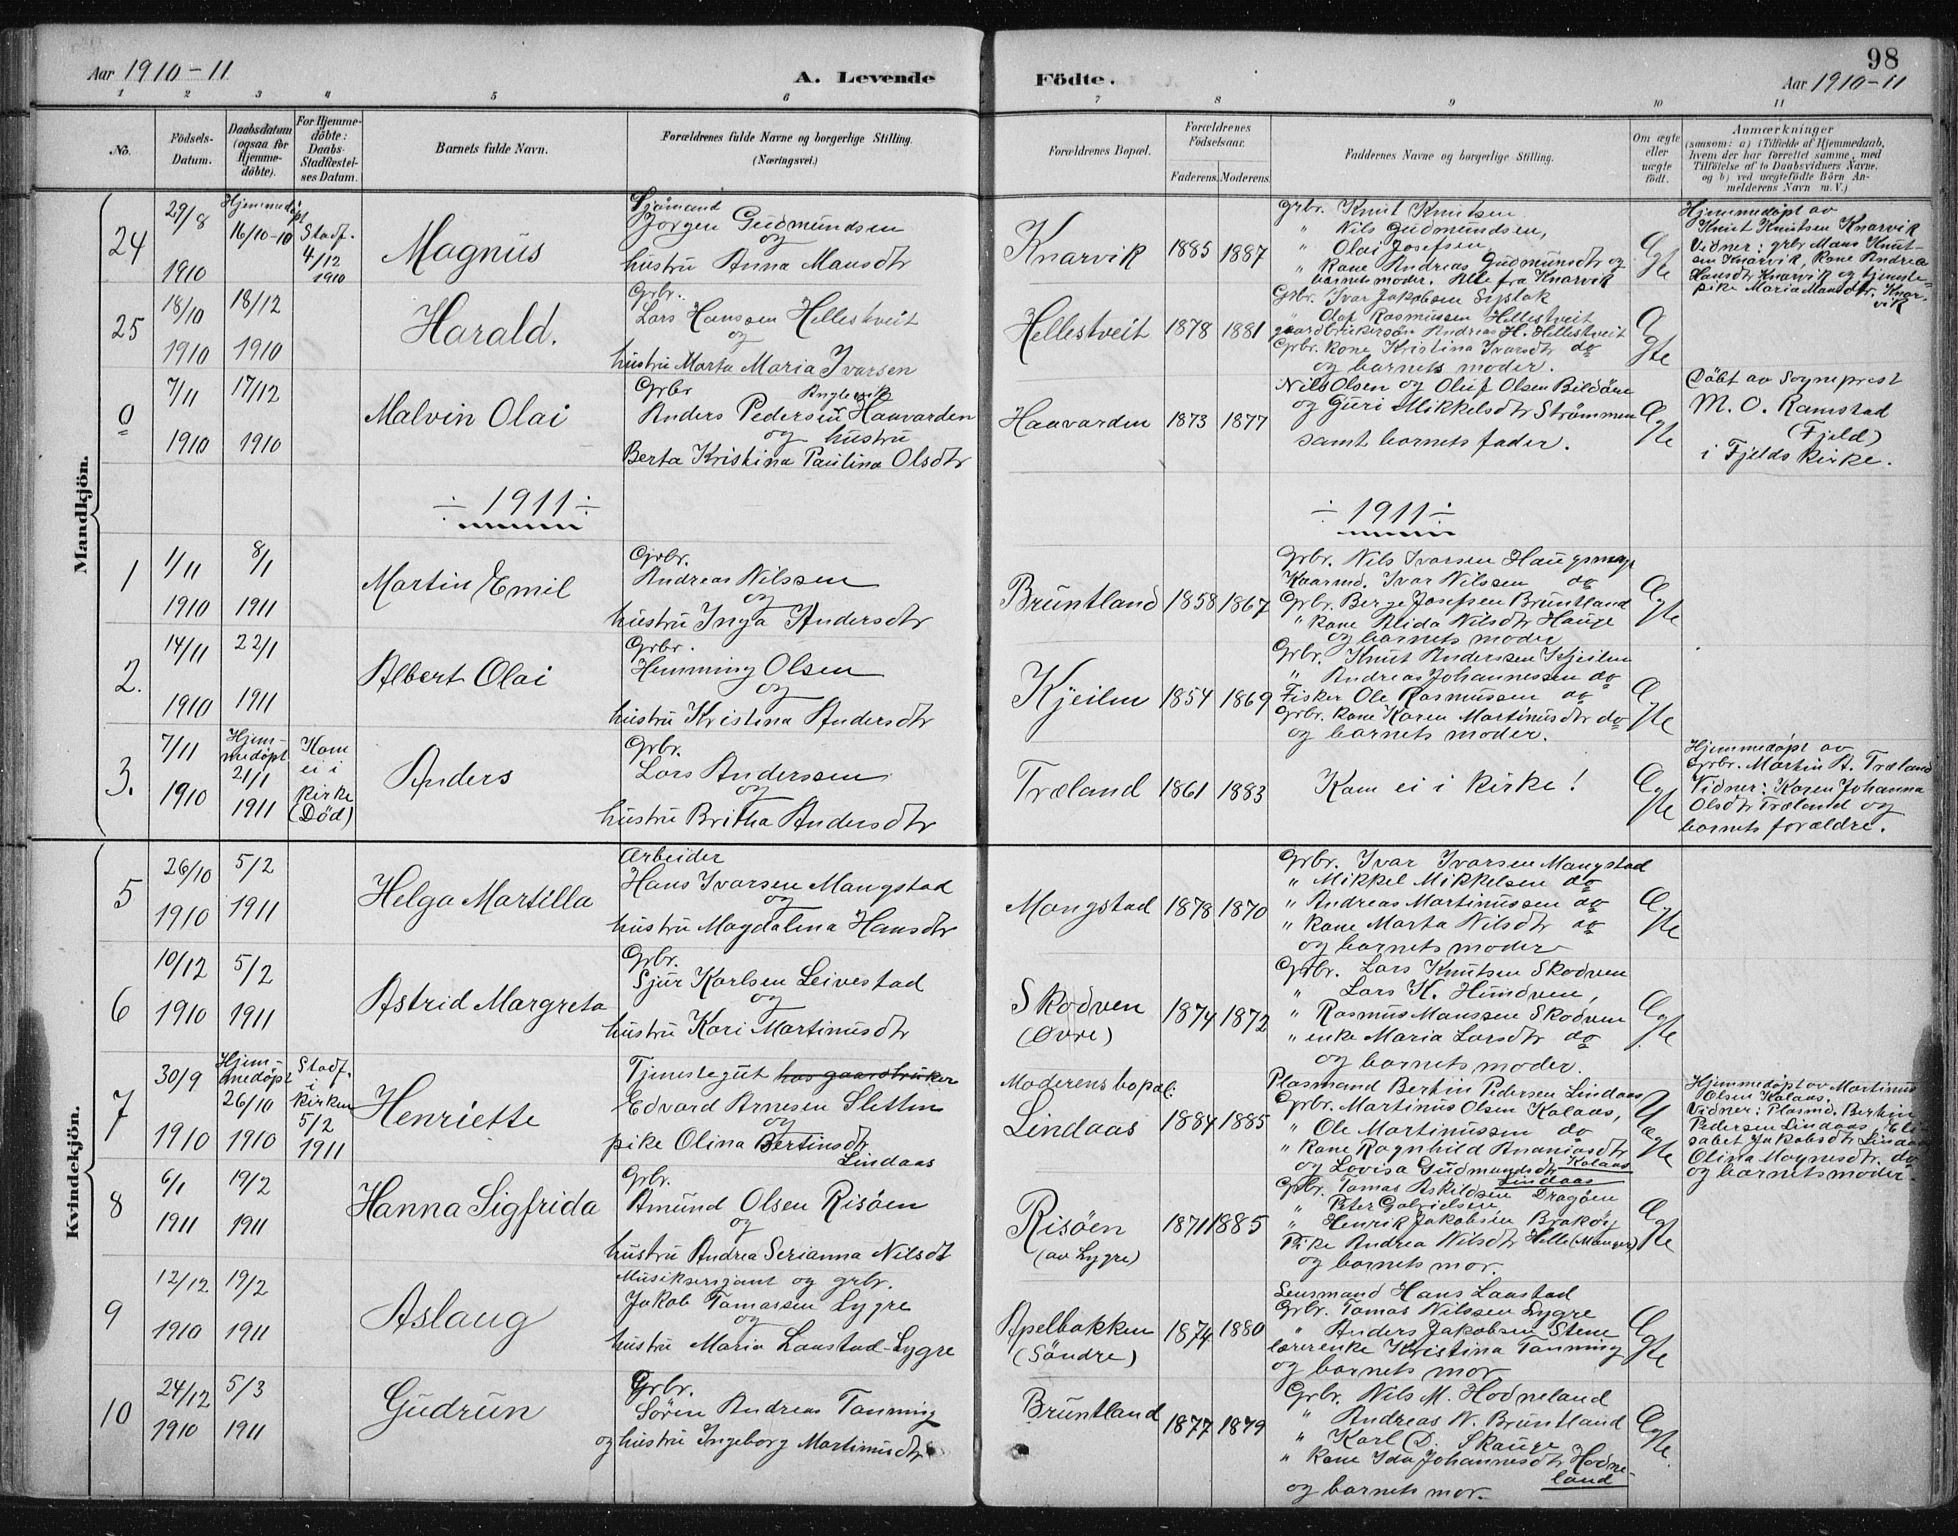 98
Aar 1910-11
A. Levende
Födte.
Aar 1910-11
1 2 3 4 5 6 7 8 9 10 11
No.
Födsels-Datum.
Daabsdatum (ogsaa for Hjemme-döbte).
For Hjemme-döbte: Daabs-Stadfæstel-ses Datum.
Barnets fulde Navn.
Forældrenes fulde Navne og borgerlige Stilling. (Næringsvei.)
Forældrenes Bopæl.
Forældrenes Födselsaar.
Faderens. Moderens.
Faddernes Navne og borgerlige Stilling.
Om ægte eller uægte födt.
Anmærkninger
(saasom: a) i Tilfælde af Hjemmedaab, hvem der har forrettet samme, med Tilföielse af to Daabsvidners Navne, og b) ved uægtefödte Börn An-melderens Navn m. V.)
Mandkjön.
24
29/8 1910
Hjemmedøpt 16/10-10
Stadf. 4/12 1910
Magnus
Sjømand
Jørgen Gudmundsen
og
hustru Anna Mansdtr
Knarvik
1885 1887
Grbr. Knut Knutsen
" Nils Gudmundsen,
" Olai Josefsen,
" Kone Andreas Gudmunsdtr og
barnets moder. Alle fra Knarvik
Ægte
Hjemmedøpt av
Knut Knutsen Knarvik
Vidner: grbr Mans Knut-
sen Knarvik, Kone Andrea
Hansdtr Knarvik og tjeneste-
pike Maria Mansdtr. Knar-
vik
25
18/10 1910
18/12 1910
Harald.
Grbr.
Lars Hanssen Hellestveit
og
hustru Marta Maria Ivarsen
Hellestveit
1878 1881
Grbr. Ivar Jakobsen Syslak
" Olaf Rasmussen Hellestveit
gaardbrukersøn Andreas H. Hellestveit
Grbr. kone Kristina Ivarsdtr do
og barnets moder.
Ægte
0
7/11 1910
17/12 1910
Malvin Olai
Grbr Anglevik
Anders Pedersen Haavarden
og hustru
Berta Kristina Paulina Olsdtr
Haavarden
1873 1877
Nils Olsen og Oluf Olsen Bildöne
og Guri Mikkelsdtr Strømmen
samt barnets fader.
Ægte
Döbt av Sogneprest
M. O. Ramstad
(Fjeld)
i Fjelds Kirke.
÷ 1911 ÷
÷ 1911 ÷
1
1/11 1910
8/1 1911
Martin Emil
Grbr.
Andreas Nilssen
og
hustru Inga Andersdtr
Bruntland
1858 1867
Grbr. Nils Ivarsen Haugsmyr
Kaarmd. Ivar Nilssen do
Grbr. Berge Josefsen Bruntland
" Kone Alida Nilsdtr Hauge
og barnets moder
Ægte
2.
14/11 1910
22/1 1911
Albert Olai
Grbr.
Hemming Olsen
og
hustru Kristina Andersdtr
Kjeilen
1854 1869
Grbr. Knut Anderssen Kjeilen
" Andreas Johannessen do
Fisker Ole Rasmussen do
Grbr. kone Karen Martinusdtr do
og barnets moder.
Ægte
3.
7/11 1910
Hjem-medøpt 21/1 1911
Kom ei i kirke (Död)
Anders
Grbr.
Lars Anderssen
og
hustru Britha Andersdtr
Træland
1861 1883
Kom ei i kirke!
Ægte
Hjemmedøpt av
Grbr. Martin A. Træland
Vidner: Karen Johanna
Olsdtr Træland og
barnets forældre.
Kvindekjön.
5
26/10 1910
5/2 1911
Helga Martilla
Arbeider
Hans Ivarsen Mangstad
og
hustru Magdalena Hansdtr
Mangstad
1878 1870
Grbr. Ivar Ivarsen Mangstad
" Mikkel Mikkelsen do
" Andreas Martinussen do
" Kone Marta Nilsdtr do
og barnets moder
Ægte
6
10/12 1910
5/2 1911
Astrid Margreta
Grbr.
Sjur Karlsen Leivestad
og
hustru Kari Martinusdtr
Skodven
(Øvre)
1874 1872
Grbr. Lars Knutsen Skodven
" Lars K. Hundven,
" Rasmus Manssen Skodven
" enke Maria Larsdtr do
og barnets moder.
Ægte
7
30/9 1910
Hjem-medøpt 26/10 1910
Stadf. i kirken 5/2 1911
Henriette
Tjenestegut hos gaardbruker
Edvard Arnesen Sletten
og
pike Olina Bertinsdtr
Lindaas
Moderens bopæl:
Lindaas
1884 1885
Plasmand Bertin Pedersen Lindaas
Grbr. Martinus Olsen Kalaas,
" Ole Martinussen do
" Kone Ragnhild Ananiasdtr
og Lovisa Gudmundsdtr Kalaas
Lindaas
Uægte
Hjemmedøpt av Martinus
Olsen Kalaas.
Vidner: Plasmd. Bertin
Pedersen Lindaas, Eli-
sabet Jakobsdtr Lindaas
Olina Magnesdtr. do
og barnets moder.
8
6/1 1911
19/2 1911
Hanna Sigfrida
Grbr.
Amund Olsen Risöen
og
hustru Andrea Serianna Nilsdt
Risöen
(av Lygre)
1871 1885
Grbr. Tomas Askildsen Dragöen
" Peter Gabrielsen
" Henrik Jakobsen Brakøy
Pike Andrea Nilsdtr Helle (Manger)
og barnets mor.
Ægte
9
12/12 1910
19/2 1911
Aslaug
Musiksersjant og grbr.
Jakob Tomassen Lygre
og
hustru Maria Laastad Lygre
Apelbakken
(Söndre)
1874 1880
Lensmand Hans Laastad
Grbr. Tomas Nilssen Lygre
" Anders Jakobsen Stene
lærerenke Kristina Tanning
og barnets mor
Ægte
10
24/12 1910
5/3 1911
Gudrun
Grbr.
Sören Andreas Tanning
og hustru Ingeborg Martinusdtr
Bruntland
1877 1879
Grbr. Nils M. Hodneland
" Andreas N. Bruntland
" Karl D. Skauge
" Kone Ida Johannesdtr Hodne-
land
og barnets mor.
Ægte.